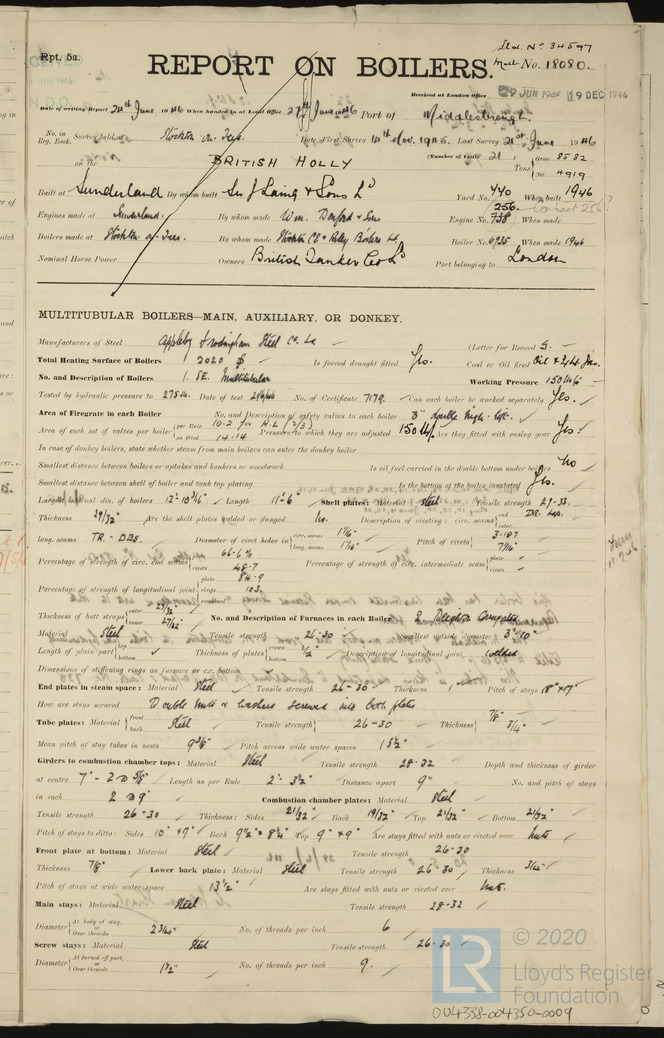 Sld. No 34597
Rpt. 5a.
REPORT ON BOILERS.
No. 18080.
Received at London Office 29 JUN 1946 19 DEC 1946
Date of writing Report 24th June 1946 When handed in at Local Office 27th June 1946 Port of Middlesbrough.
No. in Reg. Book. Survey held at Stockton on Tees. Date, First Survey 14th Nov. 1945. Last Survey 21st June 1946
on the BRITISH HOLLY (Number of Visits 21) Tons Gross 8582 Net 4919
Built at Sunderland By whom built Sir J Laing & Sons Ld Yard No. 770 When built 1946
Engines made at Sunderland. By whom made Wm. Doxford & Sons Engine No. 738 256. When made Contract 256?
Boilers made at Stockton on Tees. By whom made Stockton C E & Riley Boilers Ld Boiler No. 6735 When made 1946
Nominal Horse Power Owners British Tanker Co Ld Port belonging to London
MULTITUBULAR BOILERS—MAIN, AUXILIARY, OR DONKEY.
Manufacturers of Steel Appleby Frodingham Steel Co. Ld (Letter for Record S.
Total Heating Surface of Boilers 2020 Is forced draught fitted Yes. Coal or Oil fired Oil &
No. and Description of Boilers 1. SE. Multitubular Working Pressure 150 lb/
Tested by hydraulic pressure to 275 Date of test No. of Certificate 7179. Can each boiler be worked separately Yes.
Area of Firegrate in each Boiler No. and Description of safety valves to each boiler 3" double high lift.
Area of each set of valves per boiler per Rule 10.2 as fitted 14.14 Pressure to which they are adjusted 150 lb/ Are they fitted with easing gear Yes.
In case of donkey boilers, state whether steam from main boilers can enter the donkey boiler
Smallest distance between boilers or uptakes and bunkers or woodwork Is oil fuel carried in the double bottom under boilers No
Smallest distance between shell of boiler and tank top plating Is the bottom of the boiler insulated Yes.
Largest internal dia. of boilers 12'-10 3/16" Length 11'-6" Shell plates: Material Steel Tensile strength 29-33.
Thickness 29/32" Are the shell plates welded or flanged No. Description of riveting: circ. seams end DR. Lap. inter.
long. seams TR-DBS. Diameter of rivet holes in circ. seams 1 1/16" long. seams 1 1/16" Pitch of rivets 3.187 7 1/16"
Percentage of strength of circ. end seams plate 66.6% rivets 48.7 Percentage of strength of circ. intermediate seam plate rivets
Percentage of strength of longitudinal joint plate 84.9 rivets 103. combined
Thickness of butt straps outer 23/32" inner 27/32" No. and Description of Furnaces in each Boiler 2 Deighton Corrugated
Material Steel Tensile strength 26-30 Smallest outside diameter 3'-10"
Length of plain part top bottom Thickness of plates crown bottom 1/2" Description of longitudinal joint welded
Dimensions of stiffening rings on furnace or c.c. bottom
End plates in steam space: Material Steel Tensile strength 26-30 Thickness 1" Pitch of stays 18" x 17"
How are stays secured Double nuts & washers screwed into both plates
Tube plates: Material front back Steel Tensile strength 26-30 Thickness 7/8" 3/4"
Mean pitch of stay tubes in nests 9 3/8" Pitch across wide water spaces 13 1/2"
Girders to combustion chamber tops: Material Steel Tensile strength 28-32 Depth and thickness of girder
at centre 7" - 2 @ 5/8" Length as per Rule 2'-3 1/2" Distance apart 9" No. and pitch of stays
in each 2 @ 9" Combustion chamber plates: Material Steel
Tensile strength 26-30 Thickness: Sides 21/32" Back 19/32" Top 21/32" Bottom 21/32"
Pitch of stays to ditto: Sides 10" x 9" Back 9 1/2" x 8 1/2" Top 9" x 9" Are stays fitted with nuts or riveted over Nuts
Front plate at bottom: Material Steel Tensile strength 26-30
Thickness 7/8" Lower back plate: Material Steel Tensile strength 26-30 Thickness 3/4"
Pitch of stays at wide water space 13 1/2" Are stays fitted with nuts or riveted over Nuts.
Main stays: Material Steel Tensile strength 28-32
Diameter At body of stay, or Over threads 2 3/4" No. of threads per inch 6
Screw stays: Material Steel Tensile strength 26-30
Diameter At turned off part, or Over threads 1 1/2" No. of threads per inch 9.
© 2020
LR
Lloyd's Register
Foundation
004338-004350-0009